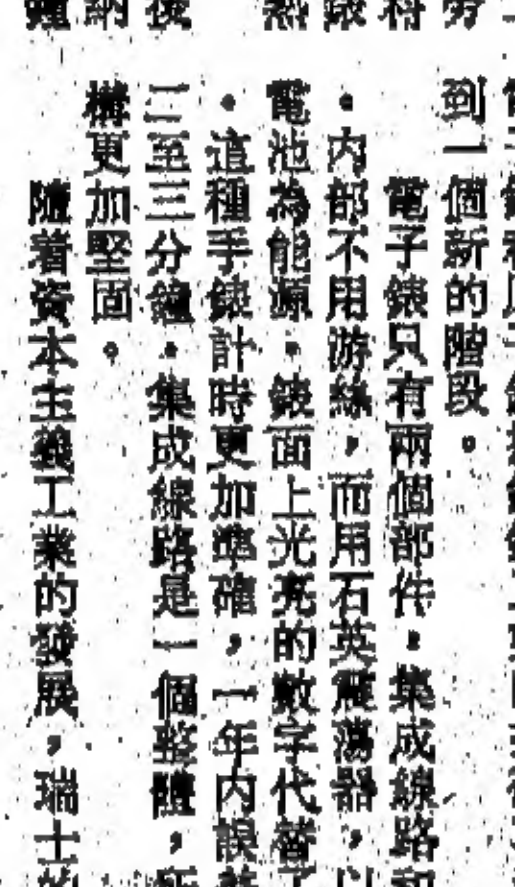 到一個新的階段。
電子錶只有兩個部件：集成線路和
。內部不用游絲，而用石英震盪器，以
電池為能源。錶面上光亮的數字代替了
。這種手錶計時更加準確，一年內誤差
二至三分鐘。集成線路是一個整體，所
構更加堅固。
隨着資本主義工業的發展，瑞士的